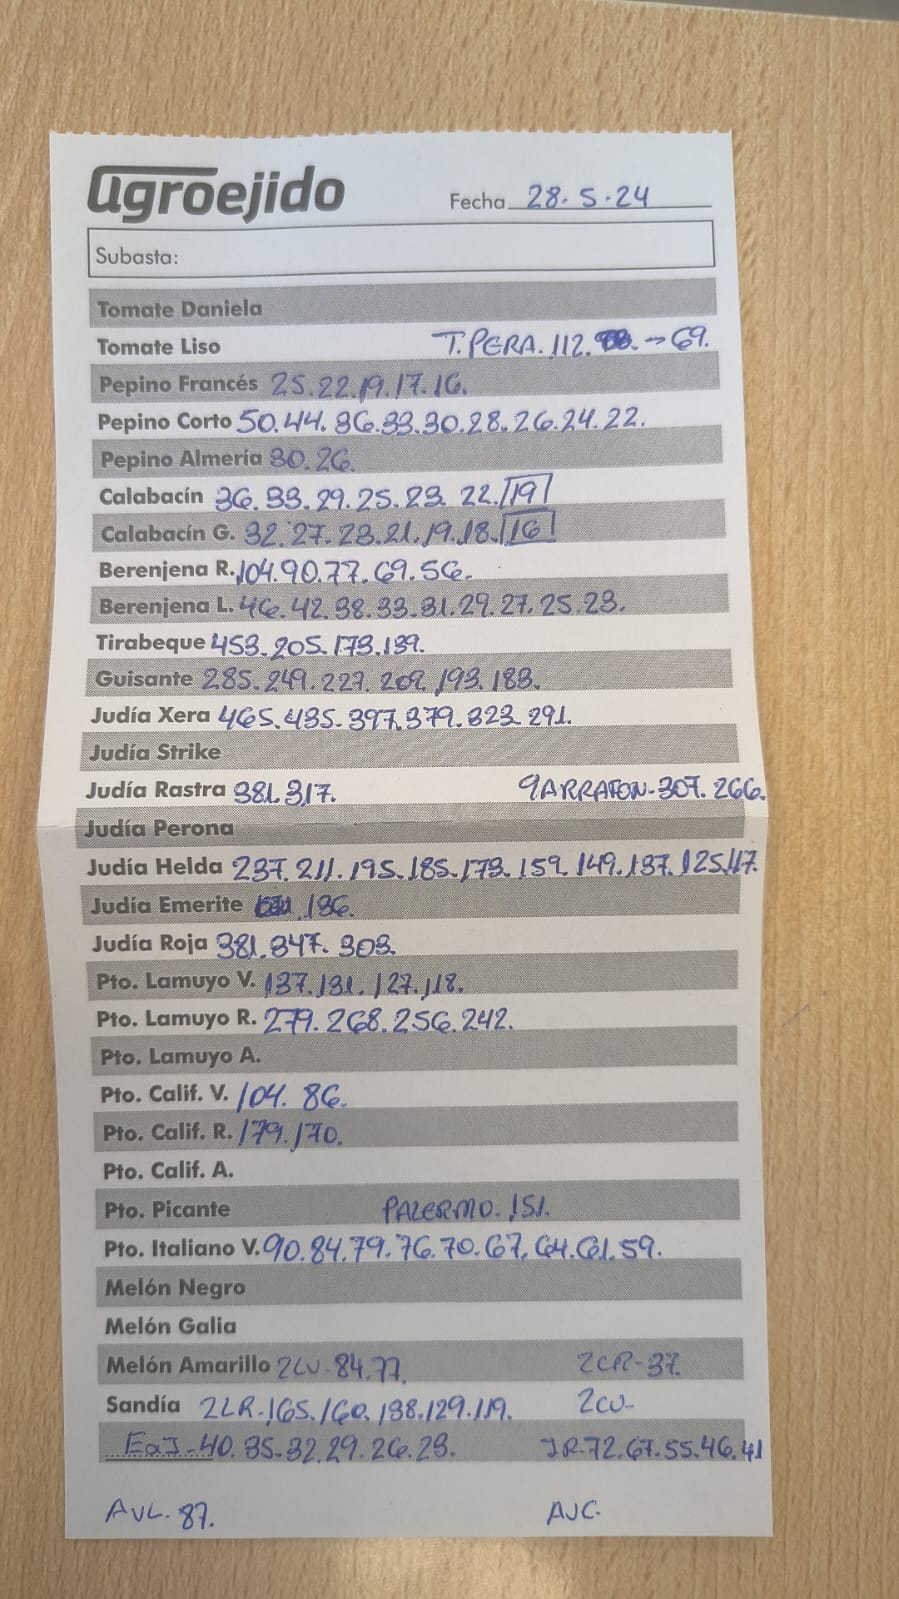 agroejido
Fecha 28.5.24
Subasta:
Tomate Daniela
Tomate Liso T.PERA.112. → 69.
Pepino Francés 25.22.19.17.16.
Pepino Corto 50.44.36.33.30.28.26.24.22.
Pepino Almería 30.26.
Calabacín 36.33.29.25.23.22.19
Calabacín G. 32.27.23.21.19.18.16
Berenjena R. 104.90.77.69.56.
Berenjena L. 46.42.38.33.31.29.27.25.23.
Tirabeque 453.205.173.139.
Guisante 285.249.227.209.193.183.
Judía Xera 465.435.397.379.323.291.
Judía Strike
Judía Rastra 381.317. GARRAFON-307.266.
Judía Perona
Judía Helda 237.211.195.185.173.159.149.137.125.117.
Judía Emerite 136.
Judía Roja 381.347.303.
Pto. Lamuyo V. 137.131.127.118.
Pto. Lamuyo R. 279.268.256.242.
Pto. Lamuyo A.
Pto. Calif. V. 104.86.
Pto. Calif. R. 179.170.
Pto. Calif. A.
Pto. Picante PALERMO.151.
Pto. Italiano V. 90.84.79.76.70.67.64.61.59.
Melón Negro
Melón Galia
Melón Amarillo 2LV-84.77. 2CR-37.
Sandía 2LR-165.160.138.129.119. 2CV-
40.35.32.29.26.23. JR-72.67.55.46.41
AVL.87. AJC.